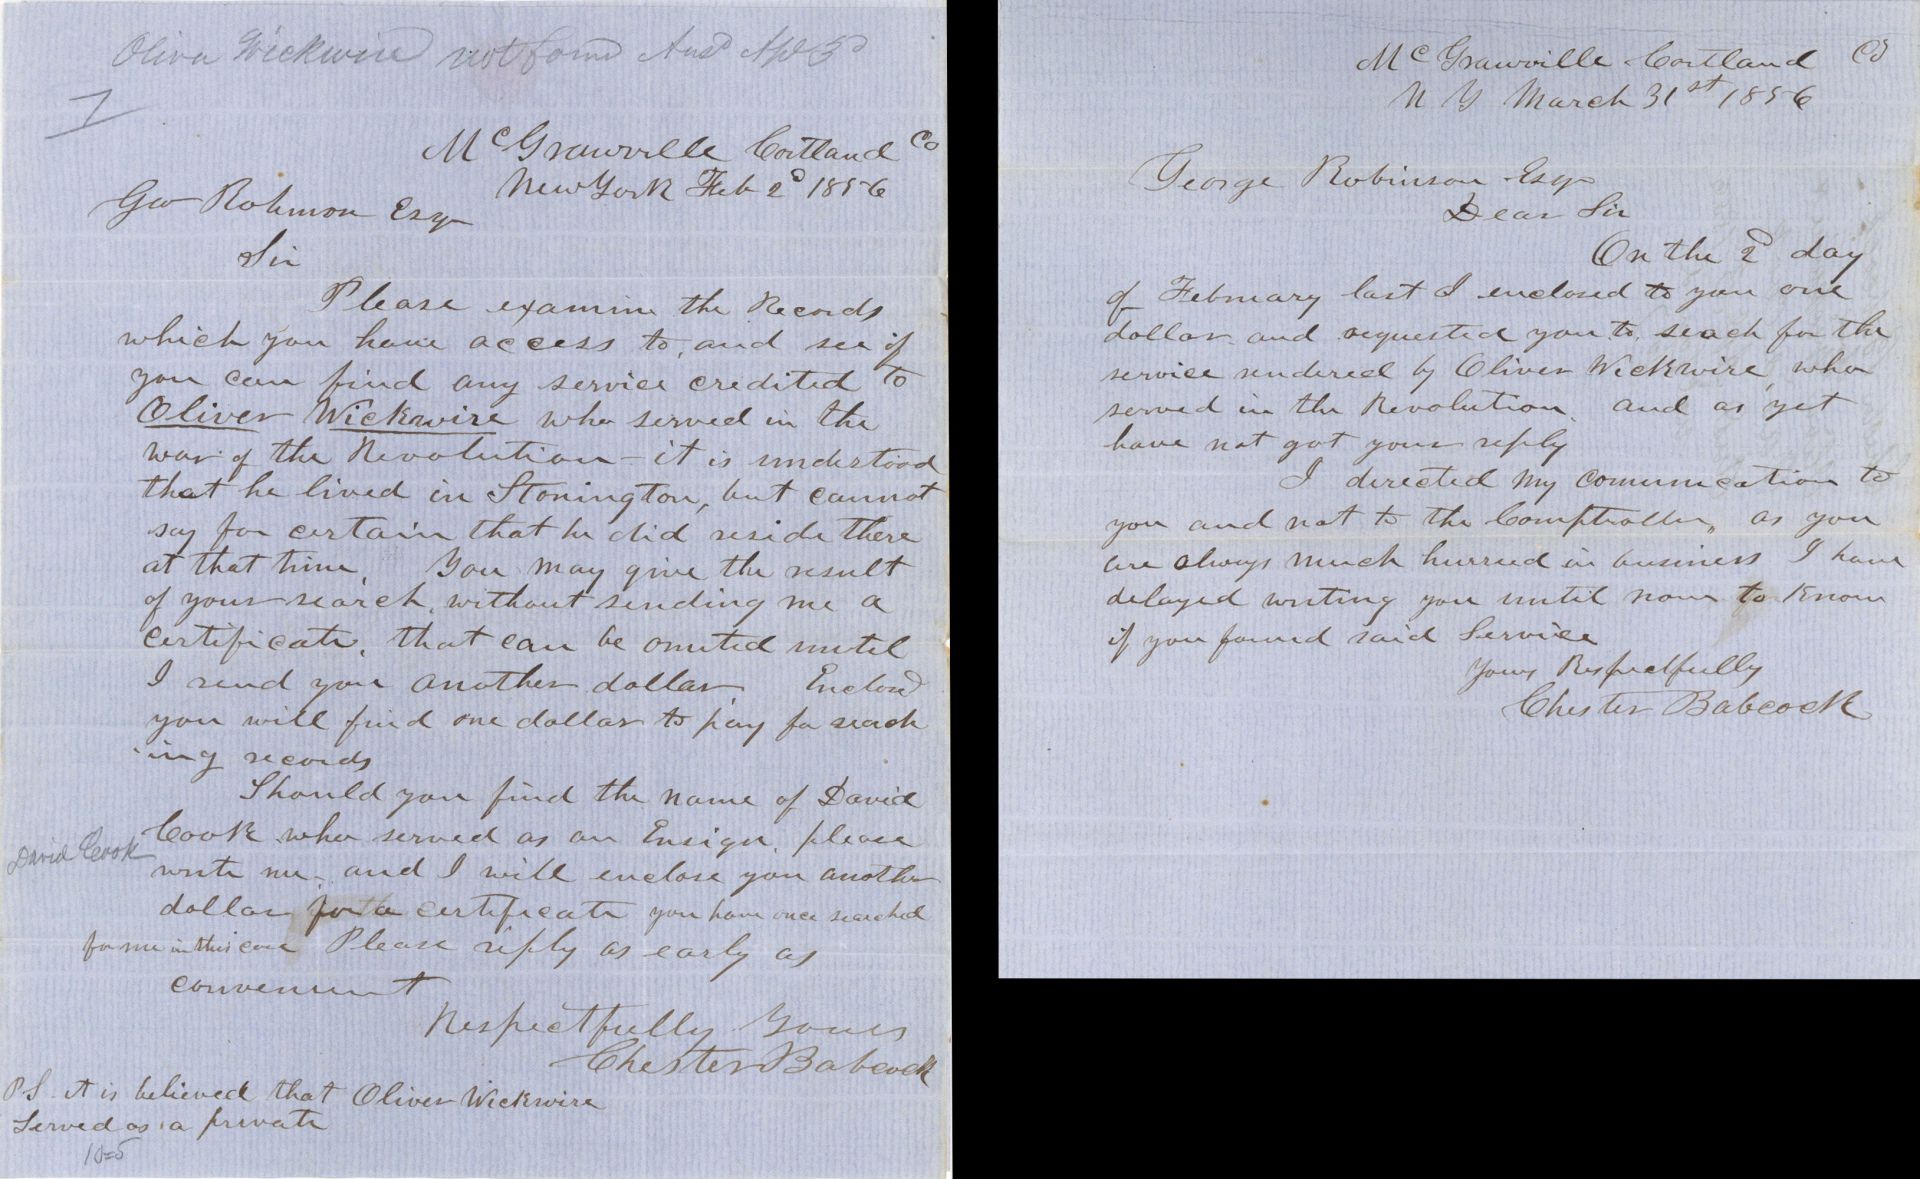 Oliver Wickwire not found Ansd Apl 3d
1
McGrawville Cortland Co
New York Feb 2d 1856
Geo Robinson Esq
Sir
Please examine the Records
which you have access to, and see if
you can find any service credited to
Oliver Wickwire who served in the
war of the Revolution - it is understood
that he lived in Stonington, but cannot
say for certain that he did reside there
at that time. You may give the result
of your search, without sending me a
certificate, that can be omited until
I send you another dollar Enclosd
you will find one dollar to pay for seach
ing records
Should you find the name of David
Cook who served as an Ensign, please
David Cook
write me, and I will enclose you another
dollar for a certificate you have once searched
for me in this case Please reply as early as
convenient
Respectfully Yours
Chester Babcock
PS it is believed that Oliver Wickwire
Served as a private
McGrawville Cortland Co
N Y March 31st 1856
George Robinson Esqr
Dear Sir
On the 2d day
of February last I enclosed to you one
dollar and requested you to seach for the
service rendered by Oliver Wickwire, who
served in the Revolution, and as yet
have not got your reply
I directed my comunication to
you and not to the Comptroller, as you
are always much hurried in business I have
delayed writing you until now to know
if you found said Service
Yours Respectfully
Chester Babcock